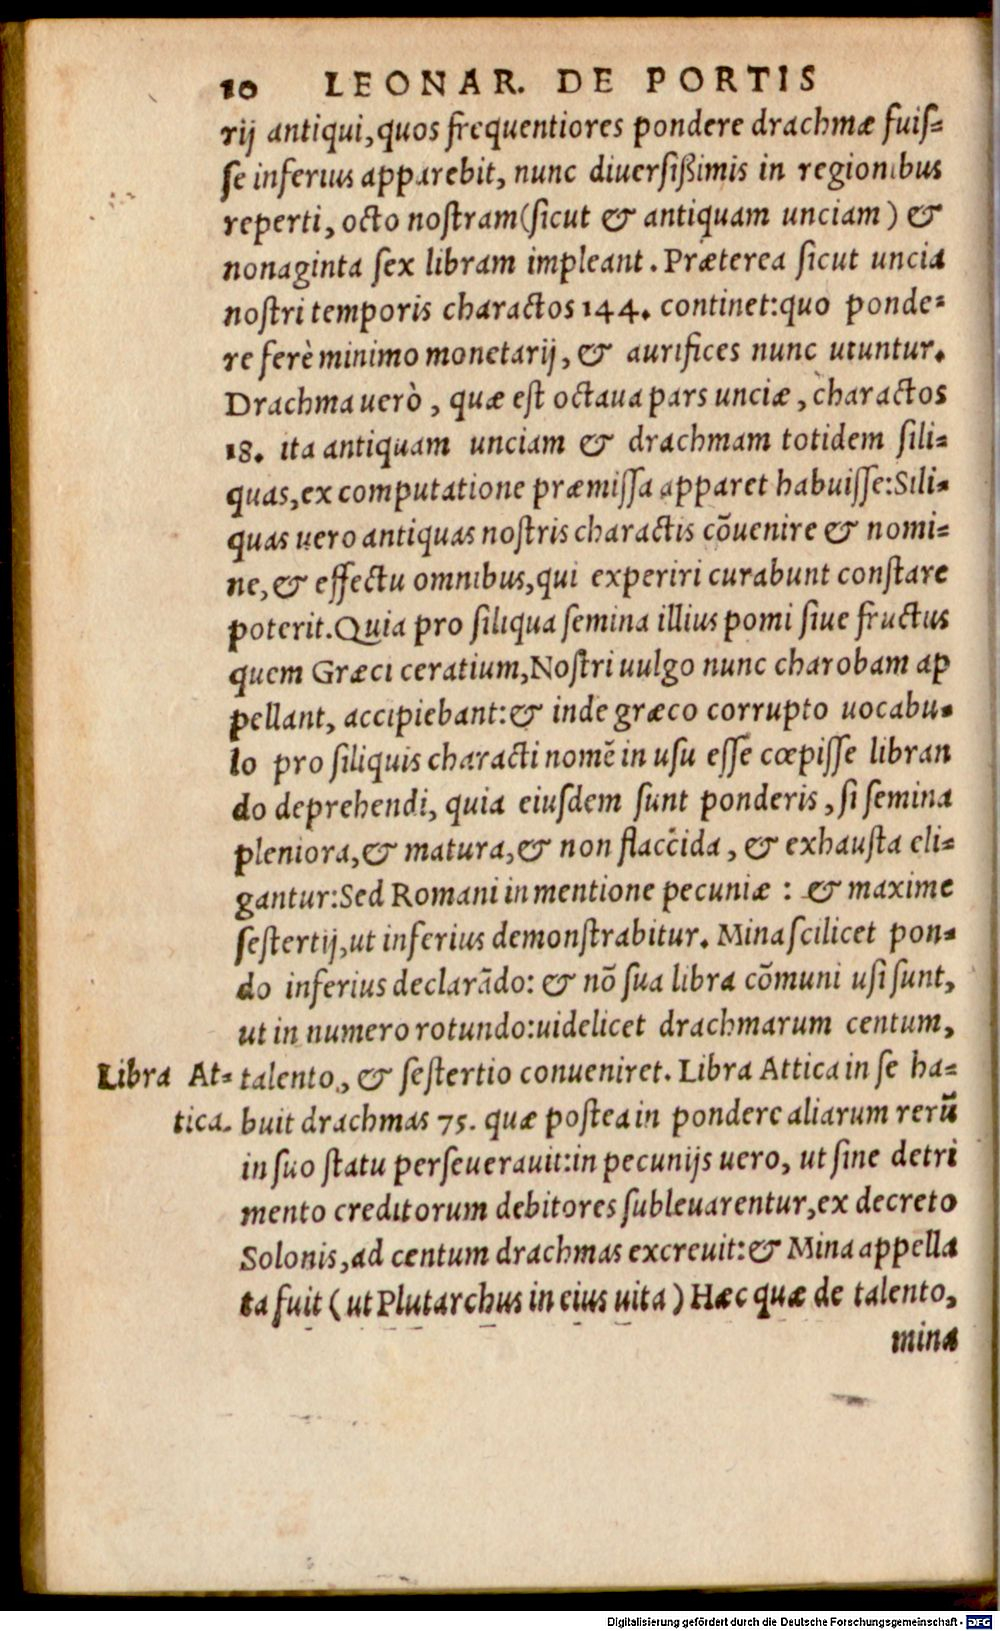 10 LEONAR. DE PORTIS
rij antiqui, quos frequentiores pondere drachmæ fuiſ=
ſe inferius apparebit, nunc diuerſiſsimis in regionibus
reperti, octo noſtram (ſicut & antiquam unciam) &
nonaginta ſex libram impleant. Præterea ſicut uncia
noſtri temporis charactos 144. continet: quo ponde=
re ferè minimo monetarij, & aurifices nunc utuntur.
Drachma uerò, quæ eſt octaua pars unciæ, charactos
18. ita antiquam unciam & drachmam totidem ſili=
quas, ex computatione præmiſſa apparet habuiſſe: Sili=
quas uero antiquas noſtris charactis cõuenire & nomi=
ne, & effectu omnibus, qui experiri curabunt conſtare
poterit. Quia pro ſiliqua ſemina illius pomi ſiue fructus
quem Græci ceratium, Noſtri uulgo nunc charobam ap
pellant, accipiebant: & inde græco corrupto uocabu=
lo pro ſiliquis characti nomẽ in uſu eſſe cœpiſſe libran
do deprehendi, quia eiuſdem ſunt ponderis, ſi ſemina
pleniora, & matura, & non flaccida, & exhauſta eli=
gantur: Sed Romani in mentione pecuniæ : & maxime
ſeſtertij, ut inferius demonſtrabitur. Mina ſcilicet pon=
do inferius declarãdo: & nõ ſua libra cõmuni uſi ſunt,
ut in numero rotundo: uidelicet drachmarum centum,
Libra At= talento, & ſeſtertio conueniret. Libra Attica in ſe ha=
tica. buit drachmas 75. quæ poſtea in pondere aliarum rerũ
in ſuo ſtatu perſeuerauit: in pecunijs uero, ut ſine detri
mento creditorum debitores ſubleuarentur, ex decreto
Solonis, ad centum drachmas excreuit: & Mina appella
ta fuit (ut Plutarchus in eius uita) Hæc quæ de talento,
mina
Digitalisierung gefördert durch die Deutsche Forschungsgemeinschaft - DFG